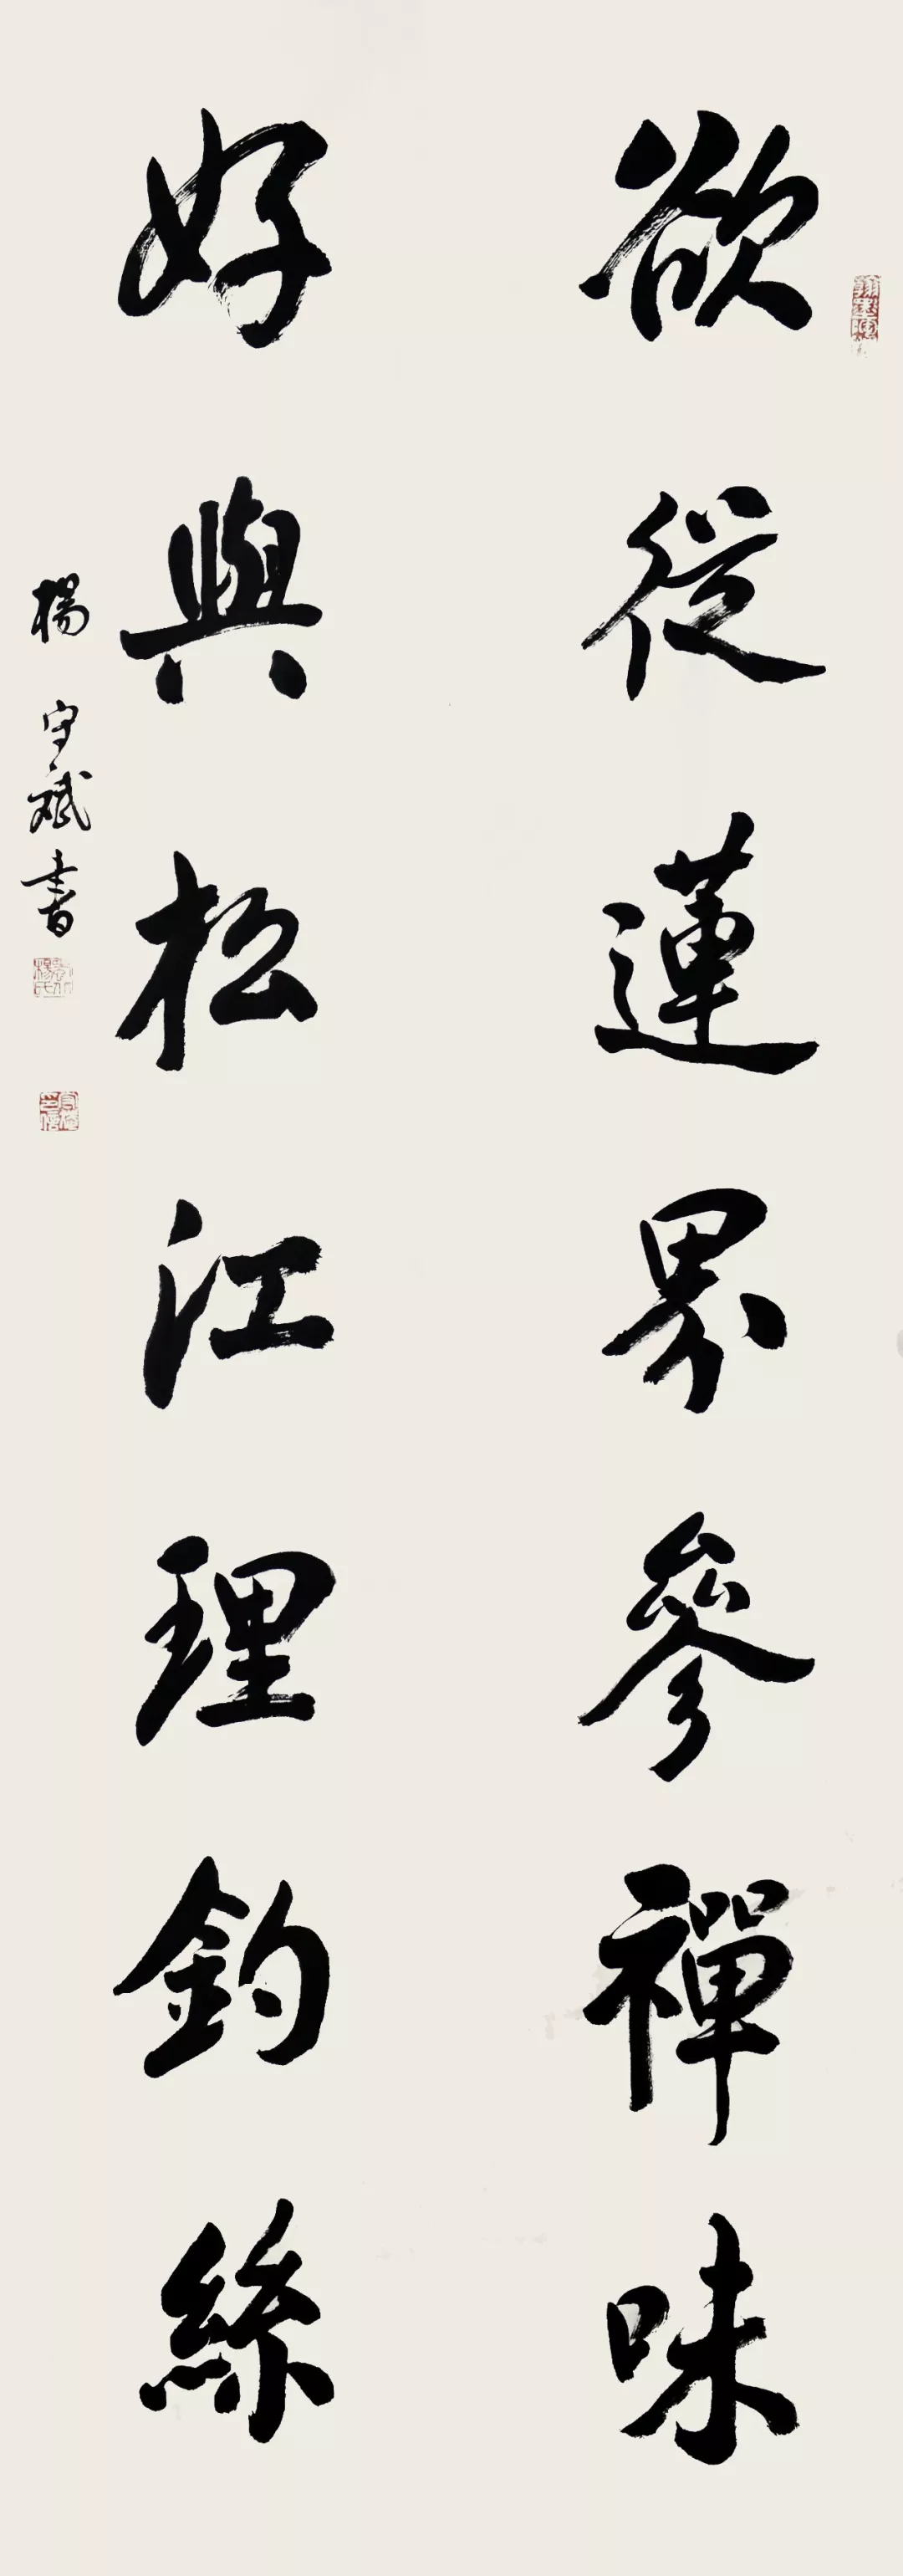 欲從蓮界參禪味
好與松江理釣絲
楊守斌書